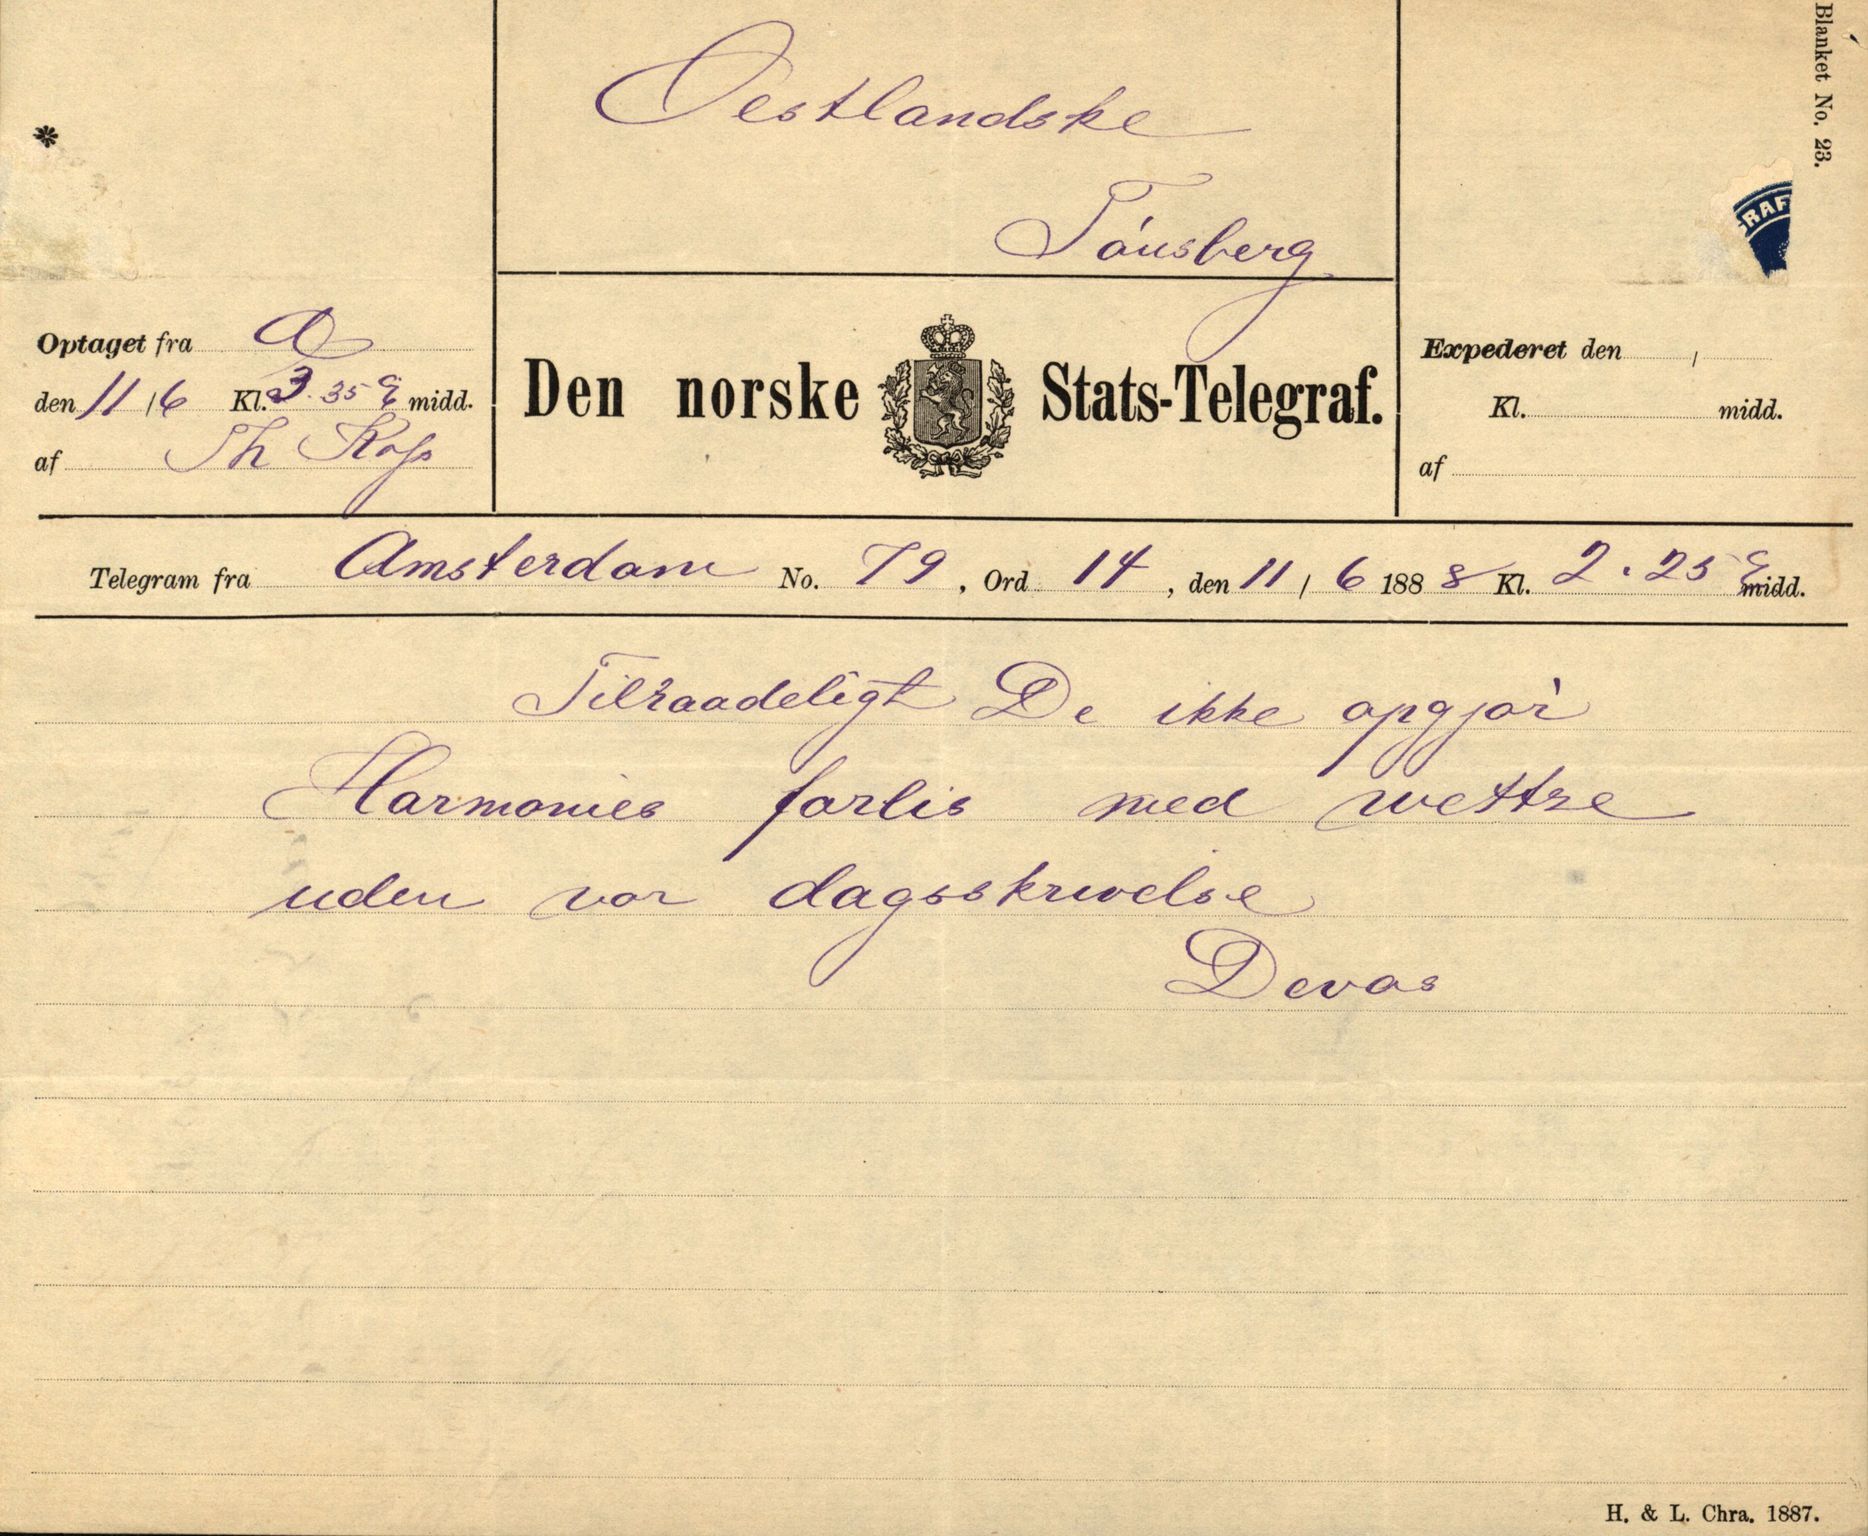 Blanket No. 23.
*
Oestlandske
Tönsberg
RAF
Optaget fra A
den 11/6 Kl. 3.35 E midd.
af Th
Den norske Stats-Telegraf.
Expederet den /
Kl. midd.
af
Telegram fra Amsterdam No. 79, Ord 14, den 11/6 1888 Kl. 2.25 E midd.
Tilraadeligt De ikke opgjör
Harmonies forlis med wettre
uden vor dagsskrivelse
Devas
H. & L. Chra. 1887.